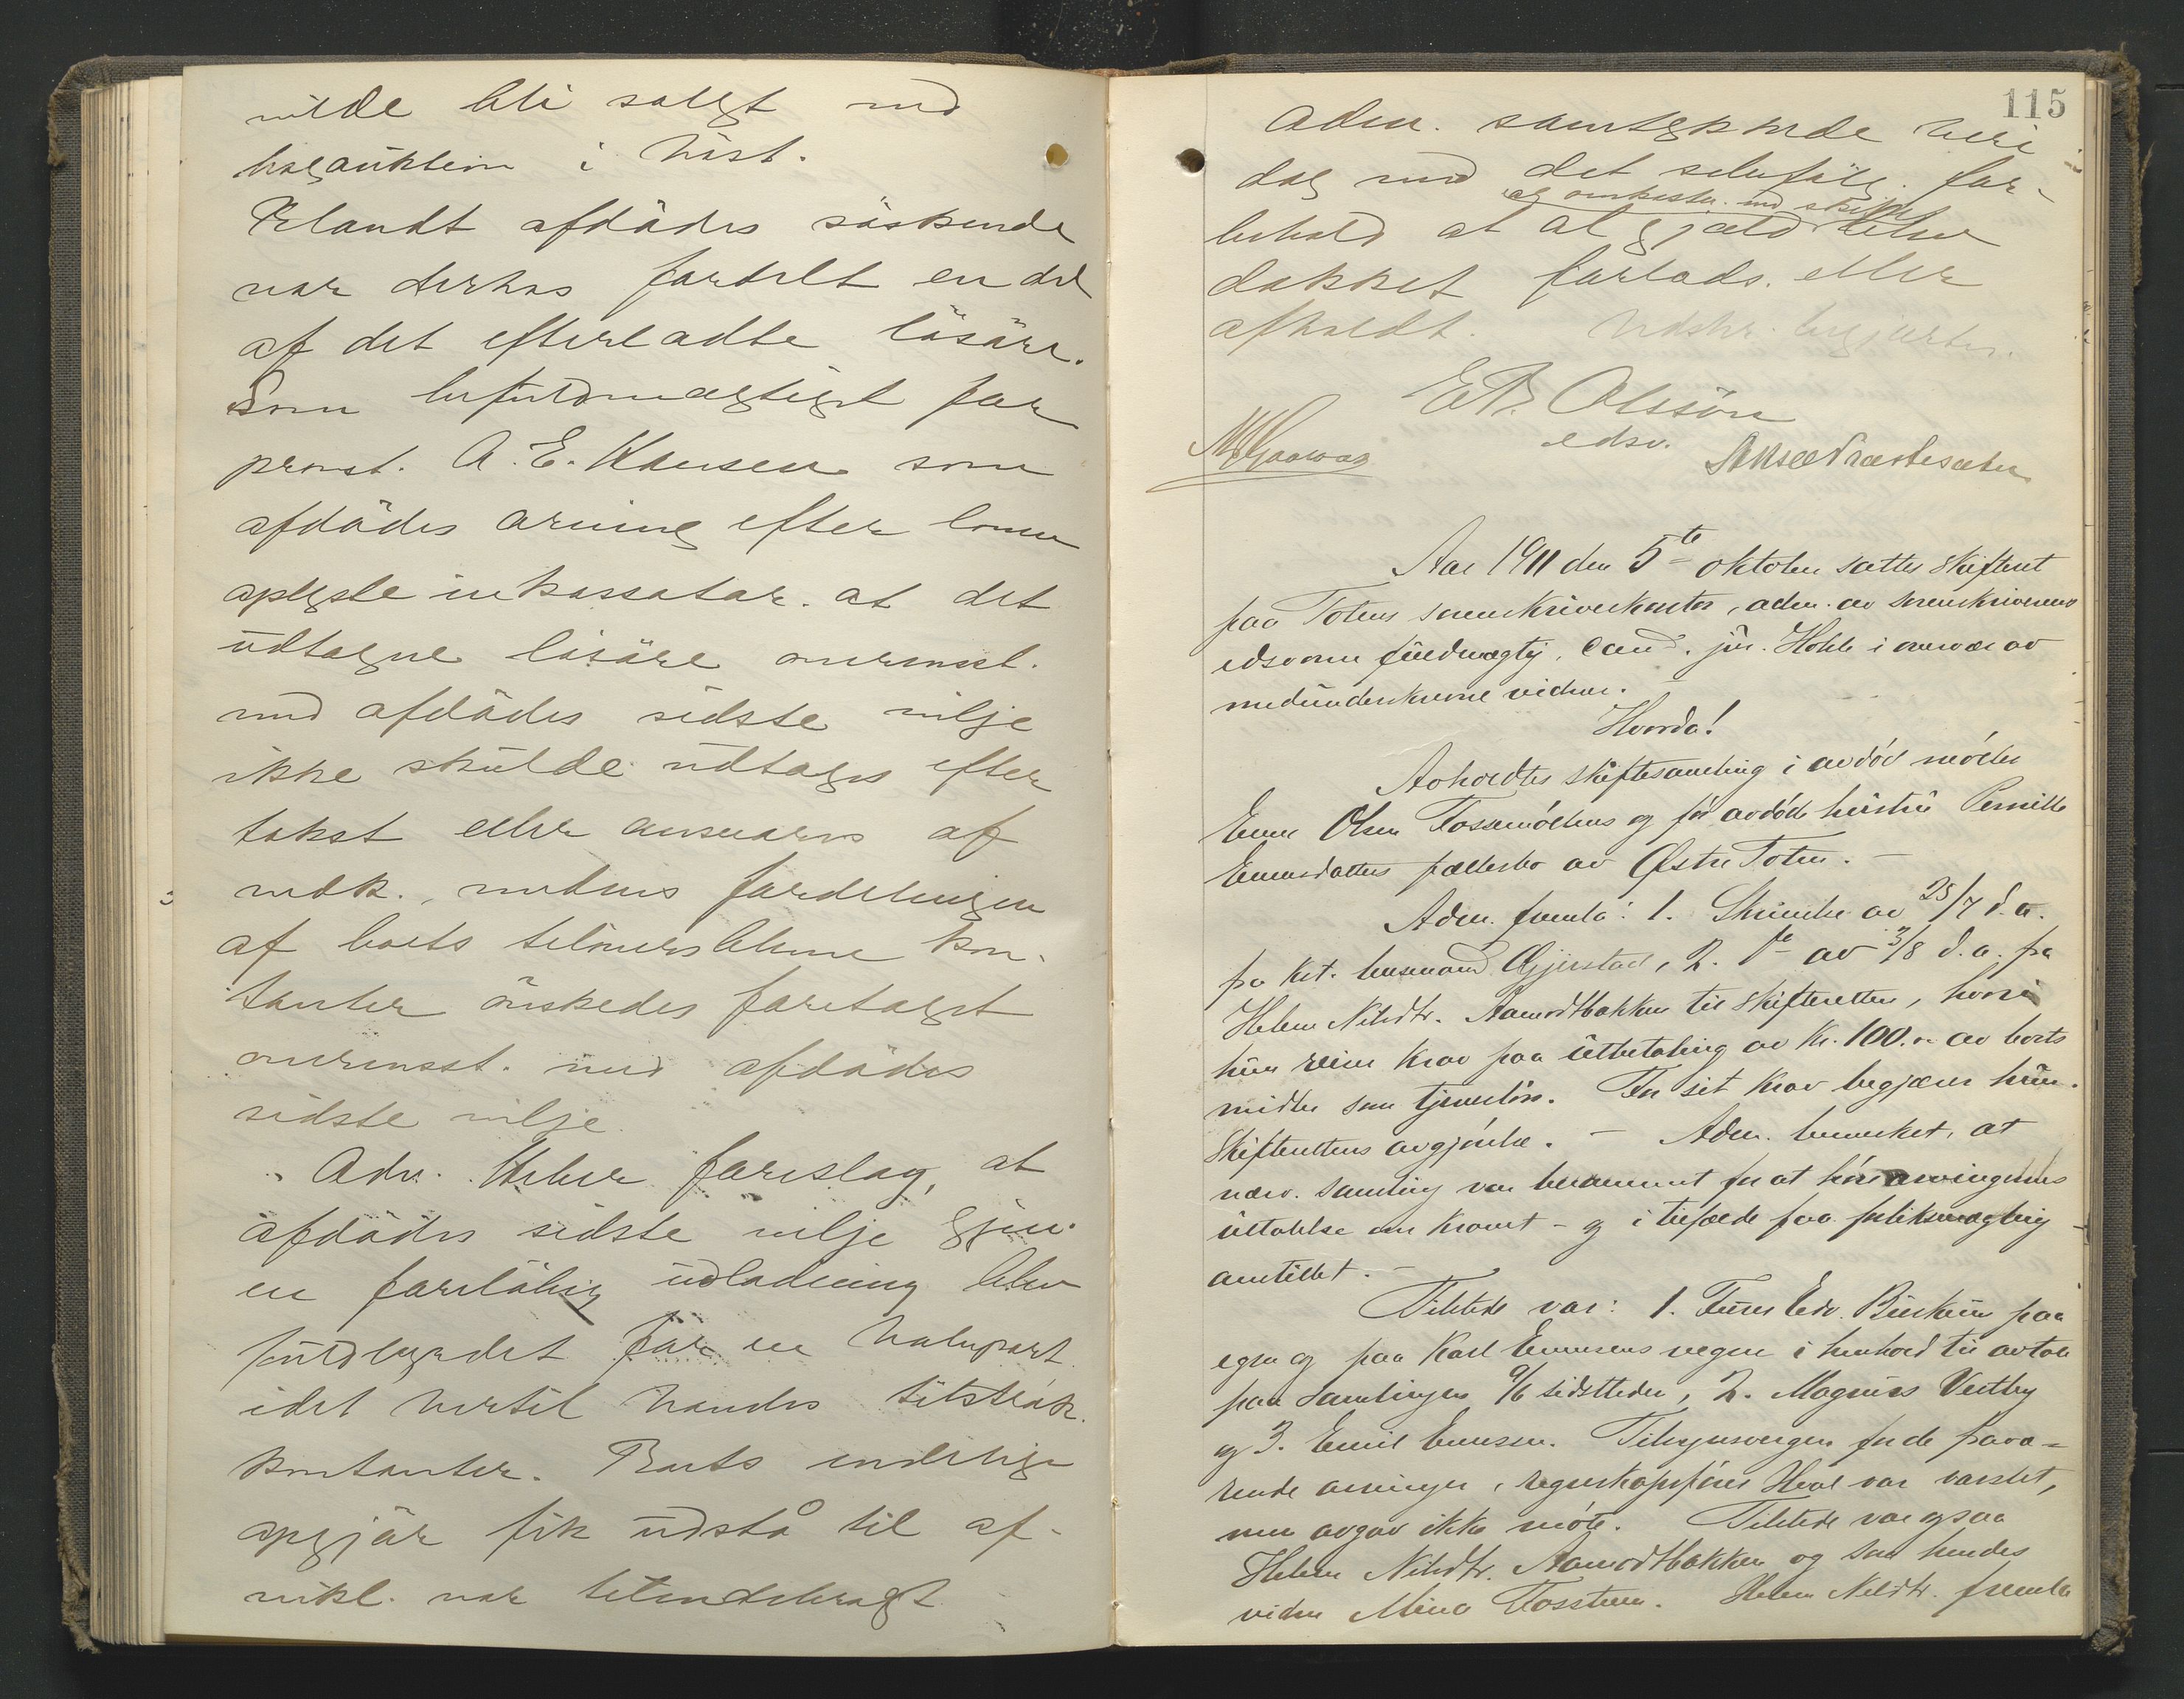 vilde bli solgt ved
bogauktion i höst.
Blandt afdödes söskende
var derhos fordelt en del
af det efterladte lösöre.
Som befuldmægtiget for
provst. A. E. Hansen som
afdödes arving efter loven
oplyste inkassator. at det
udtagne lösöre overensst.
med afdödes sidste vilje
ikke skulde udtages efter
takst eller ansvares af
vedk., medens fordelingen
af boets tiloversblevne kon-
tanter önskedes foretaget
overensst. med afdödes
sidste vilje.
Adv. Heber foreslog, at
afdödes sidste vilje gjen.
en foreløbig udlodning blev
fuldbyrdet for en halvpart
idet hertil havdes tilstræk.
kontanter. Boets endelige
opgjör fik udstå til af-
vikl. var tilendebragt
115
Adm. samtykkede heri
dog med det selvfölg. for-
og omkostn. ved skiftet
behold at al gjæld blev
dækket forlods. eller
afholdt. Udskr. begjærtes.
E.B. Olssön
edsv.
Aar 1911 den 5te oktober sattes skifteret
paa Totens sorenskriverkontor, adm. av sorenskriverens
edsvorne fuldmægtig, cand. jur. Holst i overvær av
medunderskrevne vidner.
Hvorda!
Avholdtes skiftesamling i avdöd möller
Even Olsen Fossemöllens og för avdöde hustru Pernille
Evensdatters fællesbo av Østre Toten. –
Adm. fremla: 1. Skrivelse av 25/7 d.a.
fra kst. lensmand Gjerstad, 2. do av 3/8 d.a. fra
Helene Nilsdtr. Aamodtbakken til skifteretten, hvori
hun reiser krav paa utbetaling av Kr. 100.00 av boets
midler som tjenerlön. For sit krav begjærer hun
skifterettens avgjörelse. – Adm. bemerket, at
nærv. samling var berammet for at höre arvingernes
uttalelse om kravet – og i tilfælde faa forliksmægling
anstillet. –
Tilstede var: 1. Edv. paa
egne og paa Karl Evensens vegne i henhold til avtale
paa samlingen 9/6 sidstleden, 2. Magnus Vestby
og 3. Emil Evensen. Tilsynsvergen for de fravæ-
rende arvinger, regnskapsförer Hval var varslet,
men avgav ikke möte. Tilstede var ogsaa
Helene Nilsdtr. Aamodtbakken og som hendes
vidne Mina Fossteen. Helene Nilsdtr. fremla